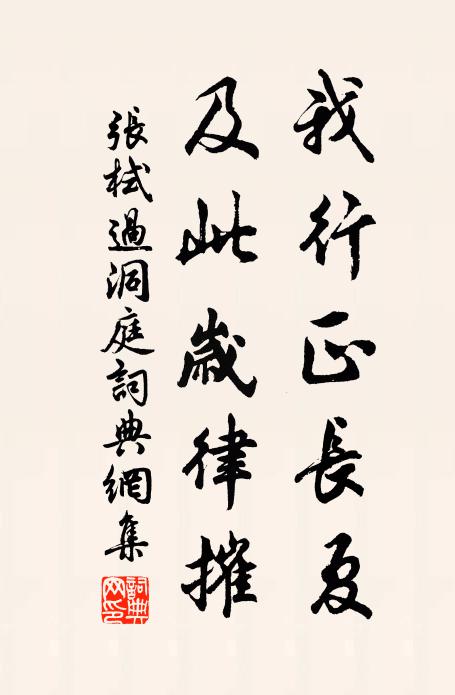 我行正長夏
及此歲律摧
張栻過洞庭詞典網集
詞典網印